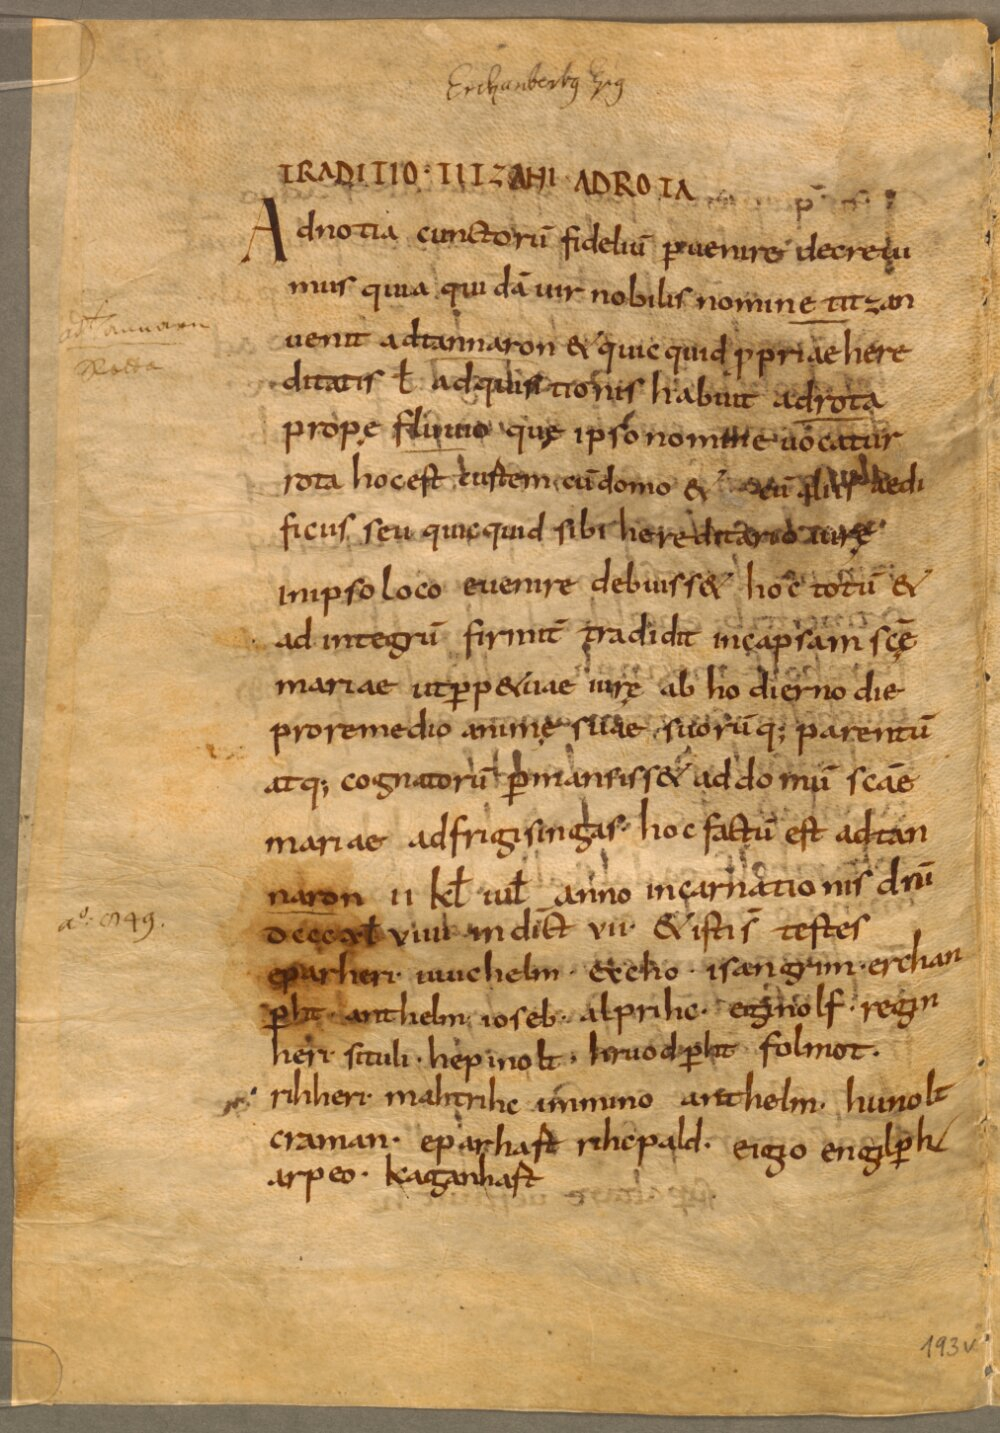 Erchanbertg Epg
TRADITIO · TITZANI · ADROTA
Adnotia cunctorū fideliū p̄uenire decreui
mus quia qui dā uir nobilis nomine titzan
uenit adtannaron & quic quid ppriae here
ditatis ł adquisitionis habuit adrota
prope fluuio quę ipso nomine uocatur
rota hocest custem cū domo & aedi
ficus seu quicquid sibi hereditario iurę
inipso loco euenire debuiss& hoc totū &
ad integrū firmit̄ tradidit incapsam scę̄
mariae utp̄p&uae iurę ab ho dierno die
proremedio animę suae suorūq; parentū
atq; cognatorū p̄mansiss& addomū scāe
mariae adfrigisingas · hoc factū est adtan
naron II kł iuł anno incarnationis dnī
dcccxł viiii indict̄ vii · & istis̄ testes
eparheri · uuichelm · excho · isangrim · erchan
p̄ht · anthelm ioseb · alprihc · eginolf · regin
heri situli · hepinolt · hruodp̄ht folmot ·
rihheri · mahtrihc immino anthelm · hunolt
craman · eparhaft rihcpald · eigio englp̄h
arpeo · kaganhaft
ad Tannarn
Rotta
aº. 849.
193v